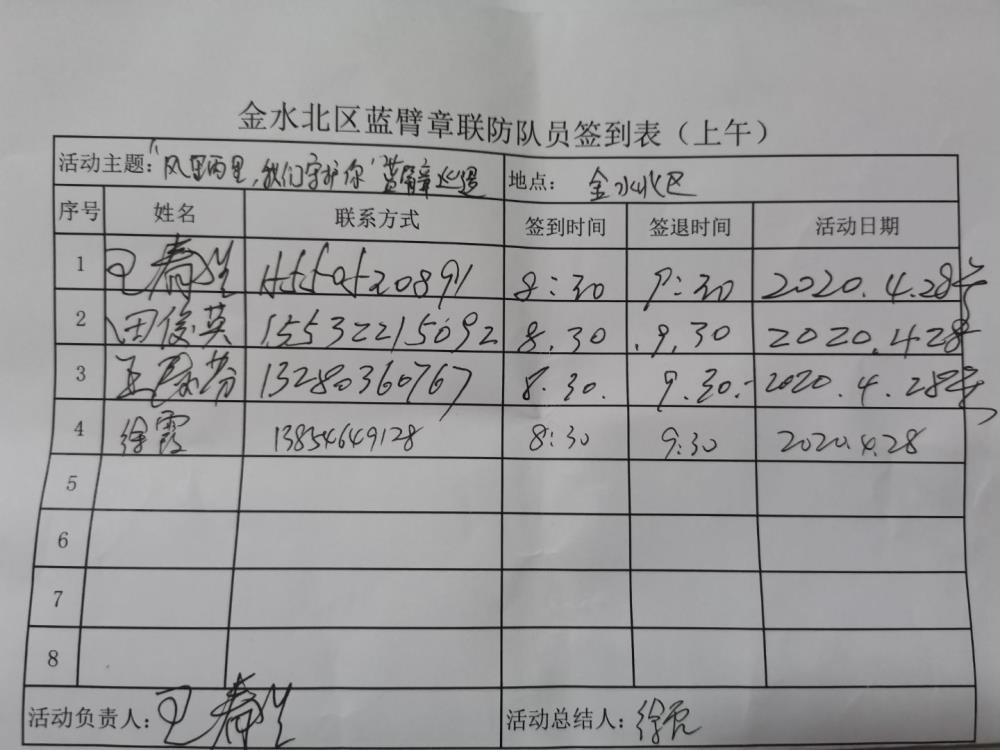 金水北区蓝臂章联防队员签到表（上午）
活动主题：“风里雨里，我们守护你”蓝臂章巡逻 地点： 金水北区
序号 姓名 联系方式 签到时间 签退时间 活动日期
1 王春生 20891 8:30 9:30 2020.4.28
2 田俊英 15532215092 8.30 9.30 2020.4.28
3 王 芬 13280360767 8.30. 9.30. 2020.4.28
4 徐霞 13854649128 8:30 9:30 2020.4.28
5
6
7
8
活动负责人：王春生 活动总结人：徐霞